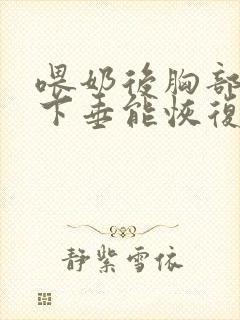 喂奶後胸部
下垂能恢復
靜紫雪依